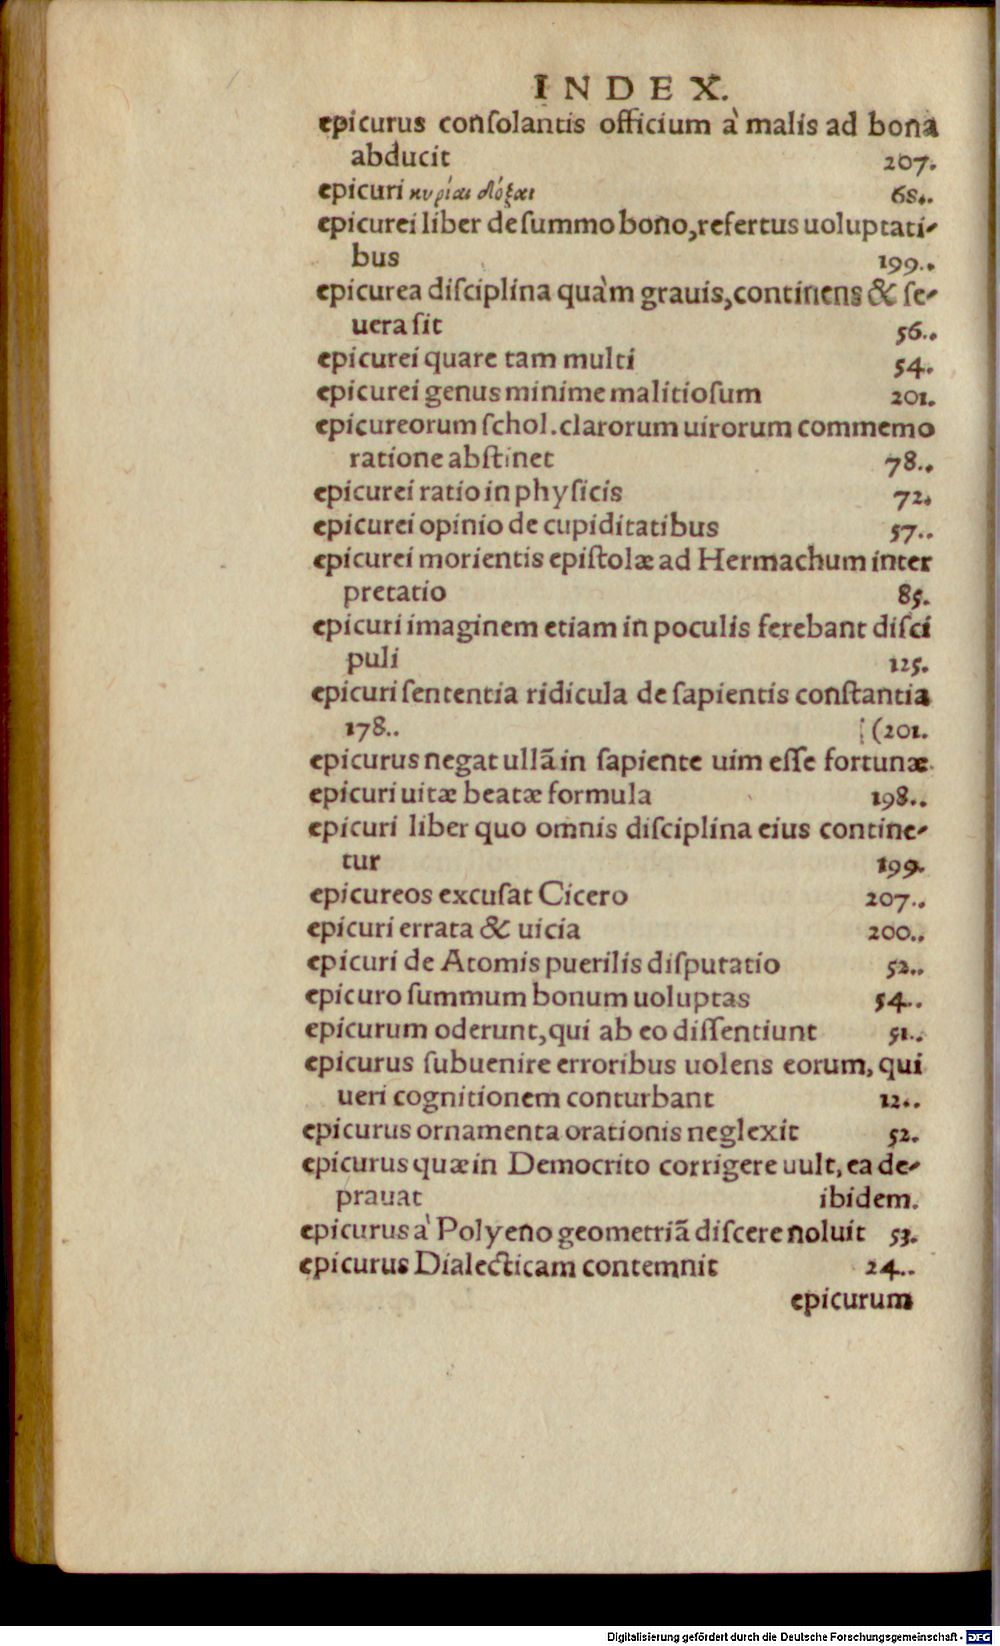 INDEX.
epicurus conſolantis officium à malis ad bona
abducit 207.
epicuri κυρίαι δόξαι 68..
epicurei liber de ſummo bono, refertus uoluptati-
bus 199..
epicurea diſciplina quàm grauis, continens & ſe-
uera ſit 56..
epicurei quare tam multi 54.
epicurei genus minime malitioſum 201.
epicureorum ſchol. clarorum uirorum commemo
ratione abſtinet 78..
epicurei ratio in phyſicis 72.
epicurei opinio de cupiditatibus 57..
epicurei morientis epiſtolæ ad Hermachum inter
pretatio 85.
epicuri imaginem etiam in poculis ferebant diſci
puli 125.
epicuri ſententia ridicula de ſapientis conſtantia
178.. (201.
epicurus negat ullã in ſapiente uim eſſe fortunæ
epicuri uitæ beatæ formula 198..
epicuri liber quo omnis diſciplina eius contine-
tur 199.
epicureos excuſat Cicero 207..
epicuri errata & uicia 200..
epicuri de Atomis puerilis diſputatio 52..
epicuro ſummum bonum uoluptas 54..
epicurum oderunt, qui ab eo diſſentiunt 51..
epicurus ſubuenire erroribus uolens eorum, qui
ueri cognitionem conturbant 12..
epicurus ornamenta orationis neglexit 52.
epicurus quæ in Democrito corrigere uult, ea de-
prauat ibidem.
epicurus à Polyeno geometriã diſcere noluit 53.
epicurus Dialecticam contemnit 24..
epicurum
Digitalisierung gefördert durch die Deutsche Forschungsgemeinschaft - DFG